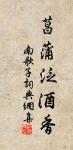 菖蒲泛酒香
南歌子詞典網集